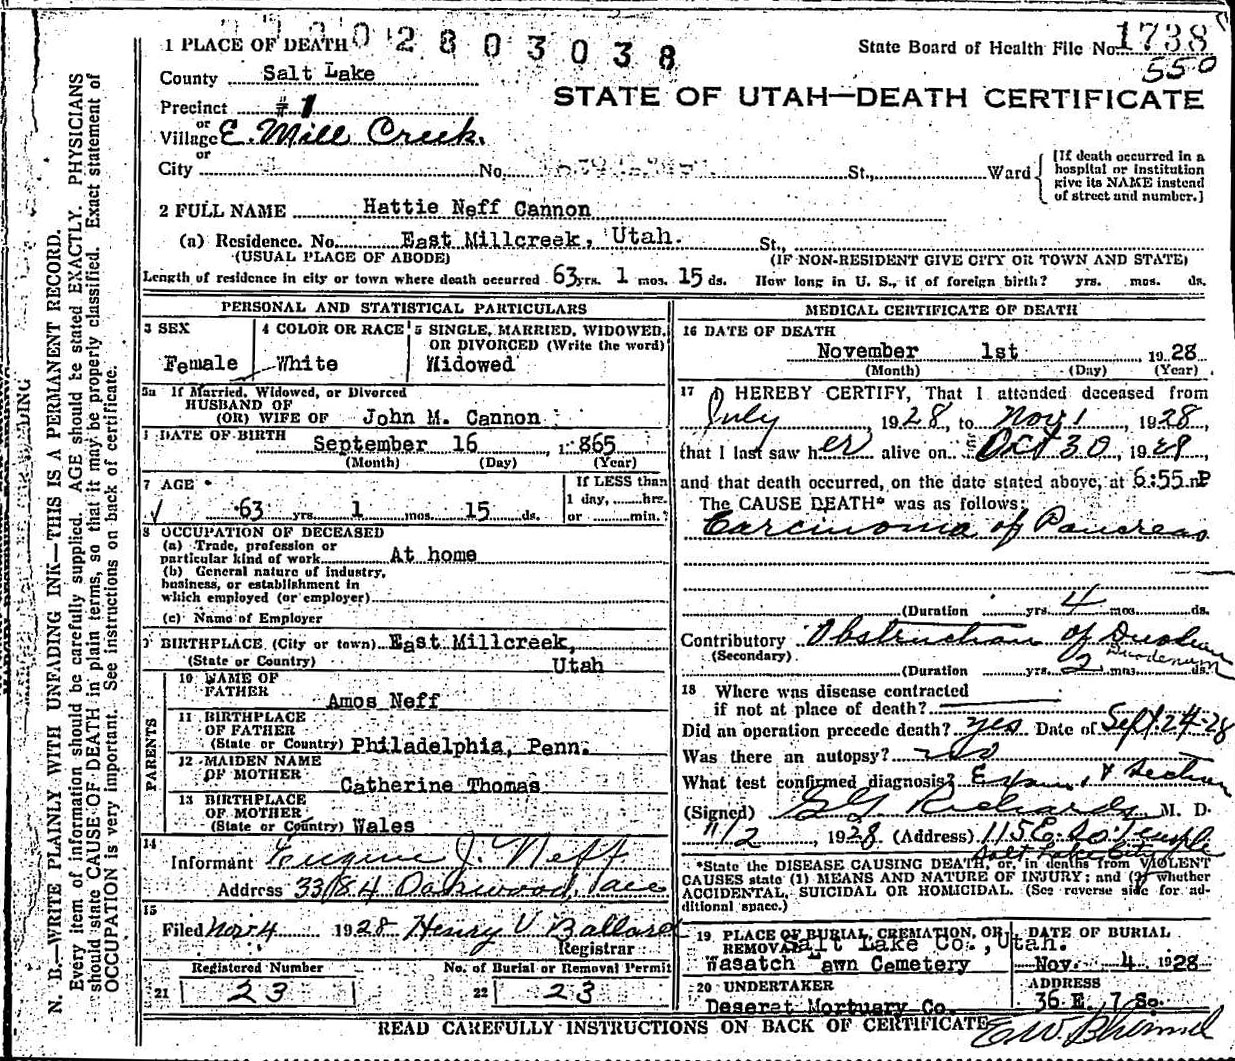 2803038
1 PLACE OF DEATH
State Board of Health File No. 1738
550
County Salt Lake
STATE OF UTAH—DEATH CERTIFICATE
Precinct #1
or
Village E. Mill Creek.
or
City No. St., Ward
[If death occurred in a hospital or institution give its NAME instead of street and number.]
2 FULL NAME Hattie Neff Cannon
(a) Residence. No. East Millcreek, Utah. St.,
(USUAL PLACE OF ABODE) (IF NON-RESIDENT GIVE CITY OR TOWN AND STATE)
Length of residence in city or town where death occurred 63 yrs. 1 mos. 15 ds. How long in U. S., if of foreign birth? yrs. mos. ds.
PERSONAL AND STATISTICAL PARTICULARS
3 SEX
Female
4 COLOR OR RACE
White
5 SINGLE, MARRIED, WIDOWED,
OR DIVORCED (Write the word)
Widowed
5a If Married, Widowed, or Divorced
HUSBAND OF
(OR) WIFE OF John M. Cannon
DATE OF BIRTH September 16, 1865
(Month) (Day) (Year)
7 AGE
63 yrs. 1 mos. 15 ds.
If LESS than
1 day, hrs.
or min.?
8 OCCUPATION OF DECEASED
(a) Trade, profession or
particular kind of work At home
(b) General nature of industry,
business, or establishment in
which employed (or employer)
(c) Name of Employer
9 BIRTHPLACE (City or town) East Millcreek,
(State or Country) Utah
PARENTS
10 NAME OF
FATHER
Amos Neff
11 BIRTHPLACE
OF FATHER
(State or Country) Philadelphia, Penn.
12 MAIDEN NAME
OF MOTHER
Catherine Thomas
13 BIRTHPLACE
OF MOTHER
(State or Country) Wales
14
Informant Eugene J. Neff
Address Oakwood,
15
Filed Nov 4 1928 Henry V Ballard
Registrar
Registered Number
21 23
No. of Burial or Removal Permit
22 23
MEDICAL CERTIFICATE OF DEATH
16 DATE OF DEATH
November 1st, 1928
(Month) (Day) (Year)
17 I HEREBY CERTIFY, That I attended deceased from
July, 1928, to Nov 1, 1928,
that I last saw her alive on Oct 30, 1928,
and that death occurred, on the date stated above, at 6:55 m P
The CAUSE DEATH* was as follows:
Carcinoma of Pancreas
(Duration yrs. 4 mos. ds.
Contributory Obstruction of Duoden
(Secondary) Duodenum
(Duration yrs. 2 mos. ds.
18 Where was disease contracted
if not at place of death?
Did an operation precede death? yes Date of Sept. 24-28
Was there an autopsy? no
What test confirmed diagnosis? & Section
(Signed) G.G. Richards M. D.
11/2, 1928 (Address) 115 E. So. Temple
Salt Lake City
*State the DISEASE CAUSING DEATH, or, in deaths from VIOLENT
CAUSES state (1) MEANS AND NATURE OF INJURY; and (2) whether
ACCIDENTAL, SUICIDAL OR HOMICIDAL. (See reverse side for ad-
ditional space.)
19 PLACE OF BURIAL, CREMATION, OR
REMOVAL Salt Lake Co., Utah.
Wasatch Lawn Cemetery
DATE OF BURIAL
Nov. 4 1928
20 UNDERTAKER
Deseret Mortuary Co.
ADDRESS
36 E. 7 So.
READ CAREFULLY INSTRUCTIONS ON BACK OF CERTIFICATE
N. B.—WRITE PLAINLY WITH UNFADING INK—THIS IS A PERMANENT RECORD.
Every item of information should be carefully supplied. AGE should be stated EXACTLY. PHYSICIANS
should state CAUSE OF DEATH in plain terms, so that it may be properly classified. Exact statement of
OCCUPATION is very important. See instructions on back of certificate.